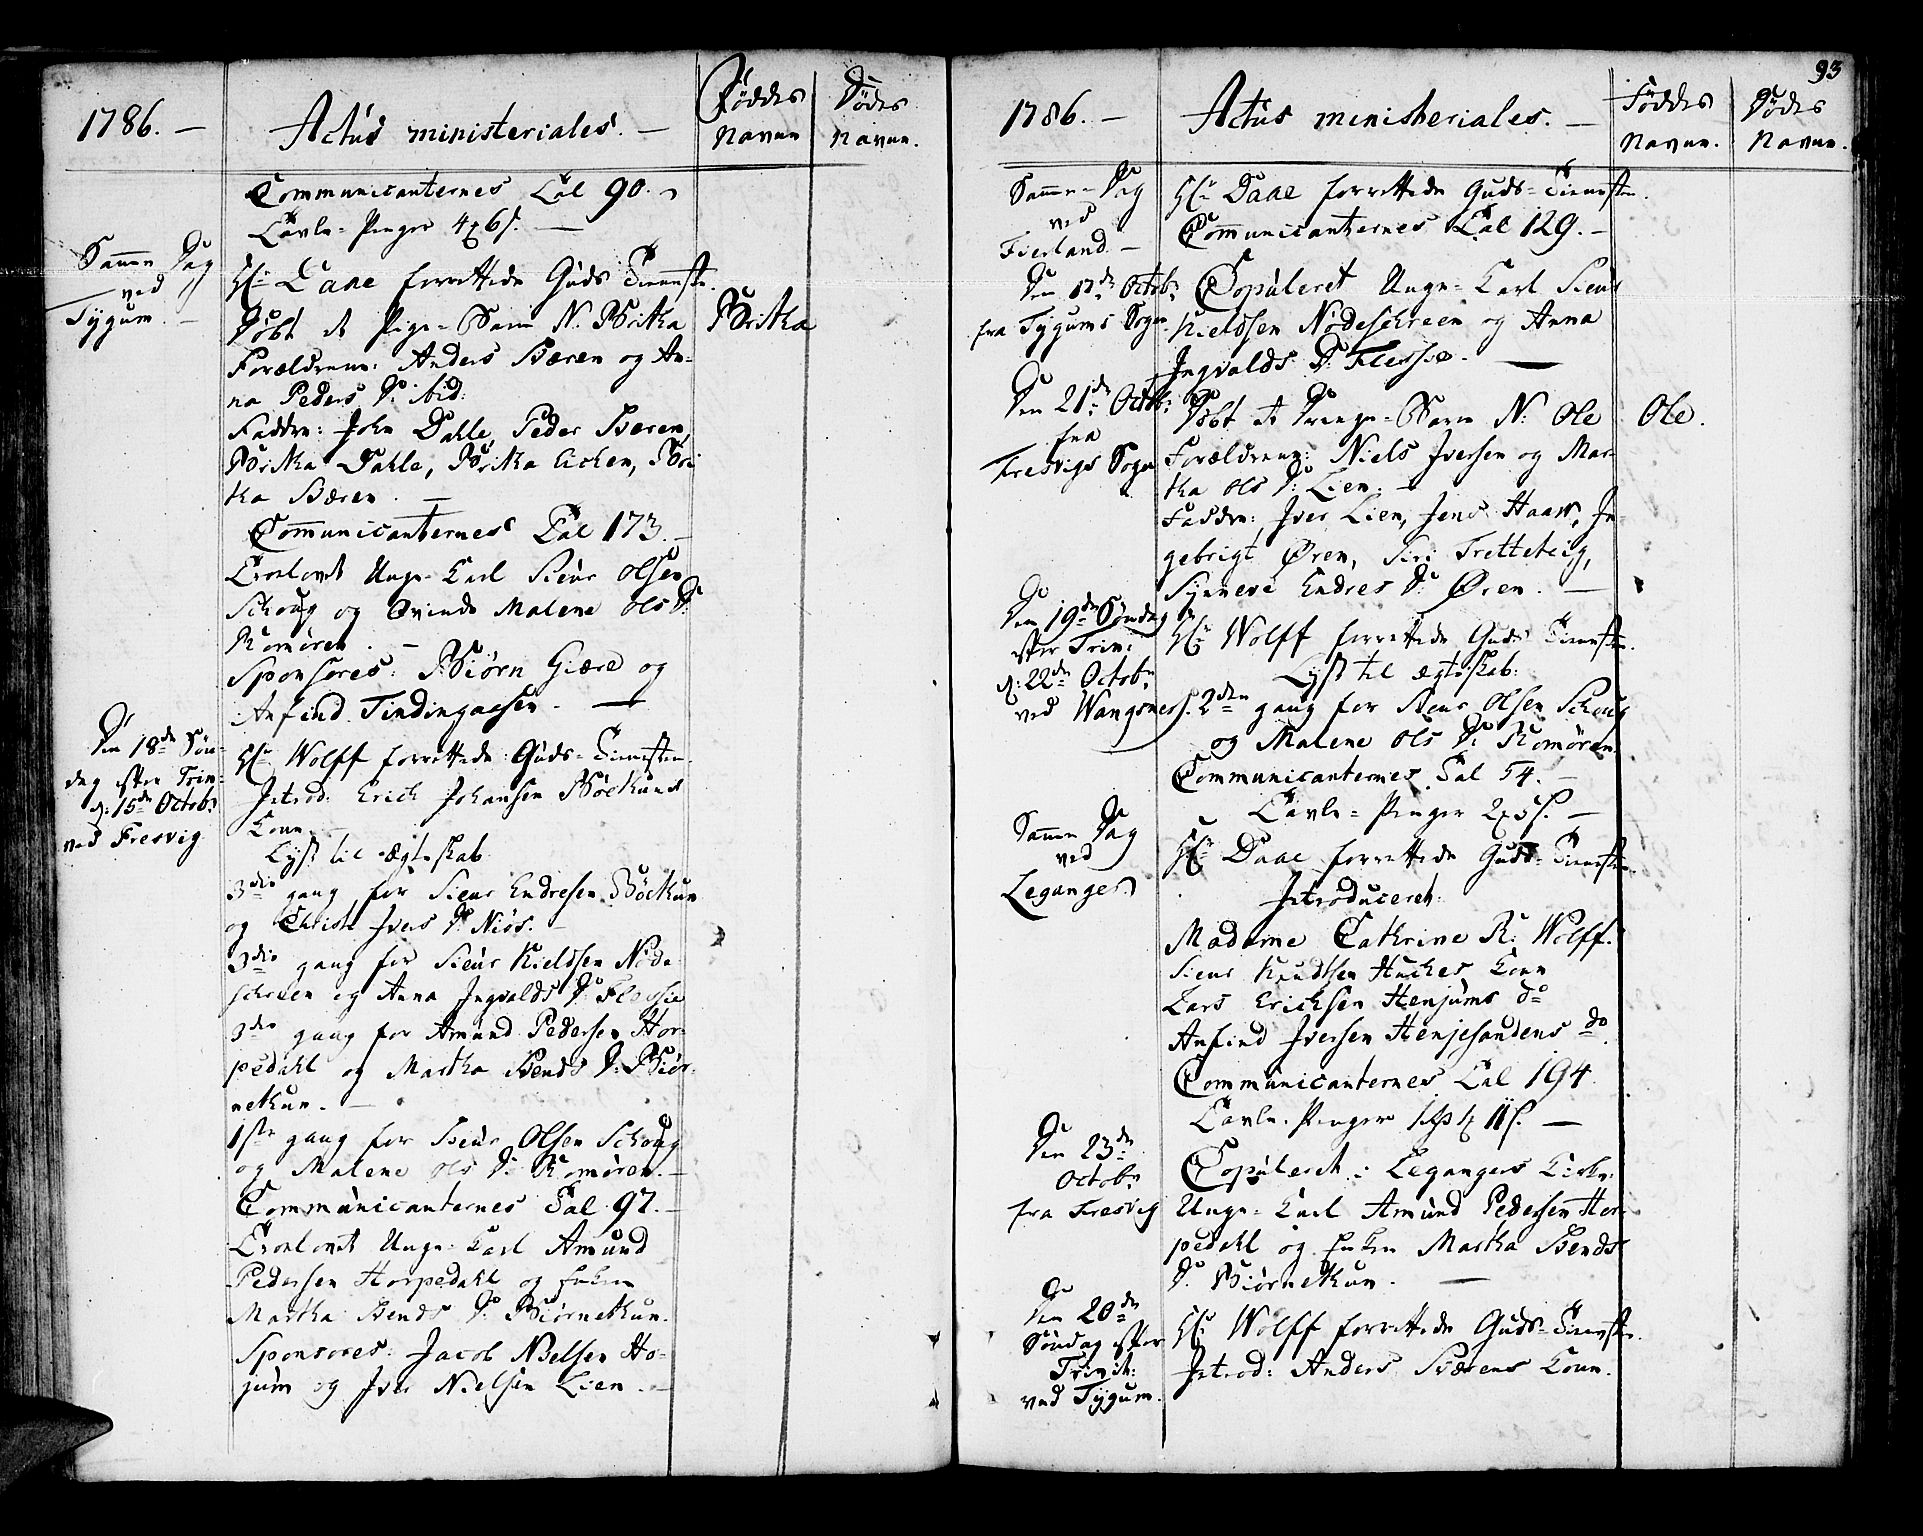 1786. —
Actus ministeriales. —
Föddes
Navne
Dödes
Navne.
Communicanternes Tal 90. —
Tavle-Penger 4 6 s. —
Samme Dag
ved
Tygum. —
Hr. Daae forrettede Guds-Tieneste.
Döbt et Pige-Barn N. Britha
Britha
Forældrene: Anders Bæren og An-
na Peders D. ibid:
Faddre: John Dahle, Peder Bæren,
Britha Dahle, Britha Eichen, Bri
tha Bæren. —
Communicanternes Tal 173. —
Trolovet Unge-Karl Siur Olsen
Schoug og Qvinde Malene Ols D.
Romören. —
Sponsores: Biörn Giære og
Anfind Findingaesen. —
Den 18de Sön-
dag efter Trin:
d. 15de Octobr
ved Fresvig
Hr. Wolff forrettede Guds-Tienesten.
Introd: Erich Johansen Böethuns
Kone
Lyst til ægteskab
3die gang for Siur Endresen Böethun
og Christi Ivers D. Niös. —
3die gang for Siur Kieldsen Nöde-
schreen og Anna Ingvalds D. Flessie
3die gang for Amund Pedersen Hor-
pedahl og Martha Bends D. Biör-
nethun. —
1ste gang for Siur Olsen Schoug
og Malene Ols D. Romören. —
Communicanternes Tal 97. —
Trolovet Unge-Karl Amund
Pedersen Horpedahl og Enken
Martha Bends D. Biörnethun.
Sponsores: Jacob Nielsen Ho-
jum og Iver Nielsen Lien. —
93
1786. —
Actus ministeriales. —
Föddes
Navne.
Dödes
Navne.
Samme-Dag
ved
Fierland. —
Hr. Daae forrettede Guds-Tienesten.
Communicanternes Tal 129. —
Den 17de Octobr
fra Tygums Sogn
Copuleret Unge-Karl Siur
Kieldsen Nödeschreen og Anna
Ingvalds D. Flessie. —
Den 21de Octobr:
fra
Fresvigs Sogn
Döbt et Drenge-Barn N: Ole
Ole.
Forældrene: Niels Iversen og Mar-
tha Ols D: Lien. —
Faddre: Iver Lien, Jens Haave, In-
gebrigt Øren, Siri Tretteteig,
Synneve Endres D. Øren. —
Den 19de Söndag
efter Trin:
d: 22de Octobr
ved Wangsness.
Hr. Wolff forrettede Guds Tienesten.
Lyst til ægteskab:
2den gang for Siur Olsen Schoug
og Malene Ols D. Romören.
Communicanternes Tal 54. —
Tavle-Penger 2 5 s. —
Samme Dag
ved
Leganger
Hr. Daae forrettede Guds-Tienesten.
Introduceret:
Madame Cathrine R. Wolff.
Siur Knudsen Huches Kone
Lars Erichsen Henjums do
Anfind Iversen Henjesandens do.
Communicanternes Tal 194
Tavle-Penger 1 11 s. —
Den 23de
Octobr
fra Fresvig
Copuleret i Legangers Kirke:
Unge-Karl Amund Pedersen Hor-
pedahl og Enken Martha Bends
D. Biörnethun. —
Den 20de
Söndag efter
Trinit:
ved Tygum.
Hr. Wolff forrettede Guds-Tienesten.
Introd: Anders Bærens Kone.